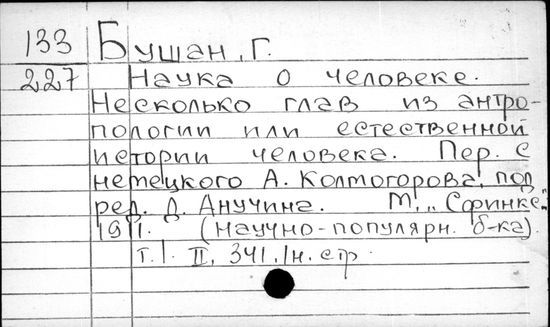 133 Бушан, Г.
227 Наука о человеке.
Несколько глав из антро-
пологии или естественной
истории человека. Пер. с
немецкого А. Колмогорова, под
ред. Д. Анучина. М., „Сфинкс“,
1911. (Научно-популярн. б-ка).
т. I. II, 341, 1н. стр.